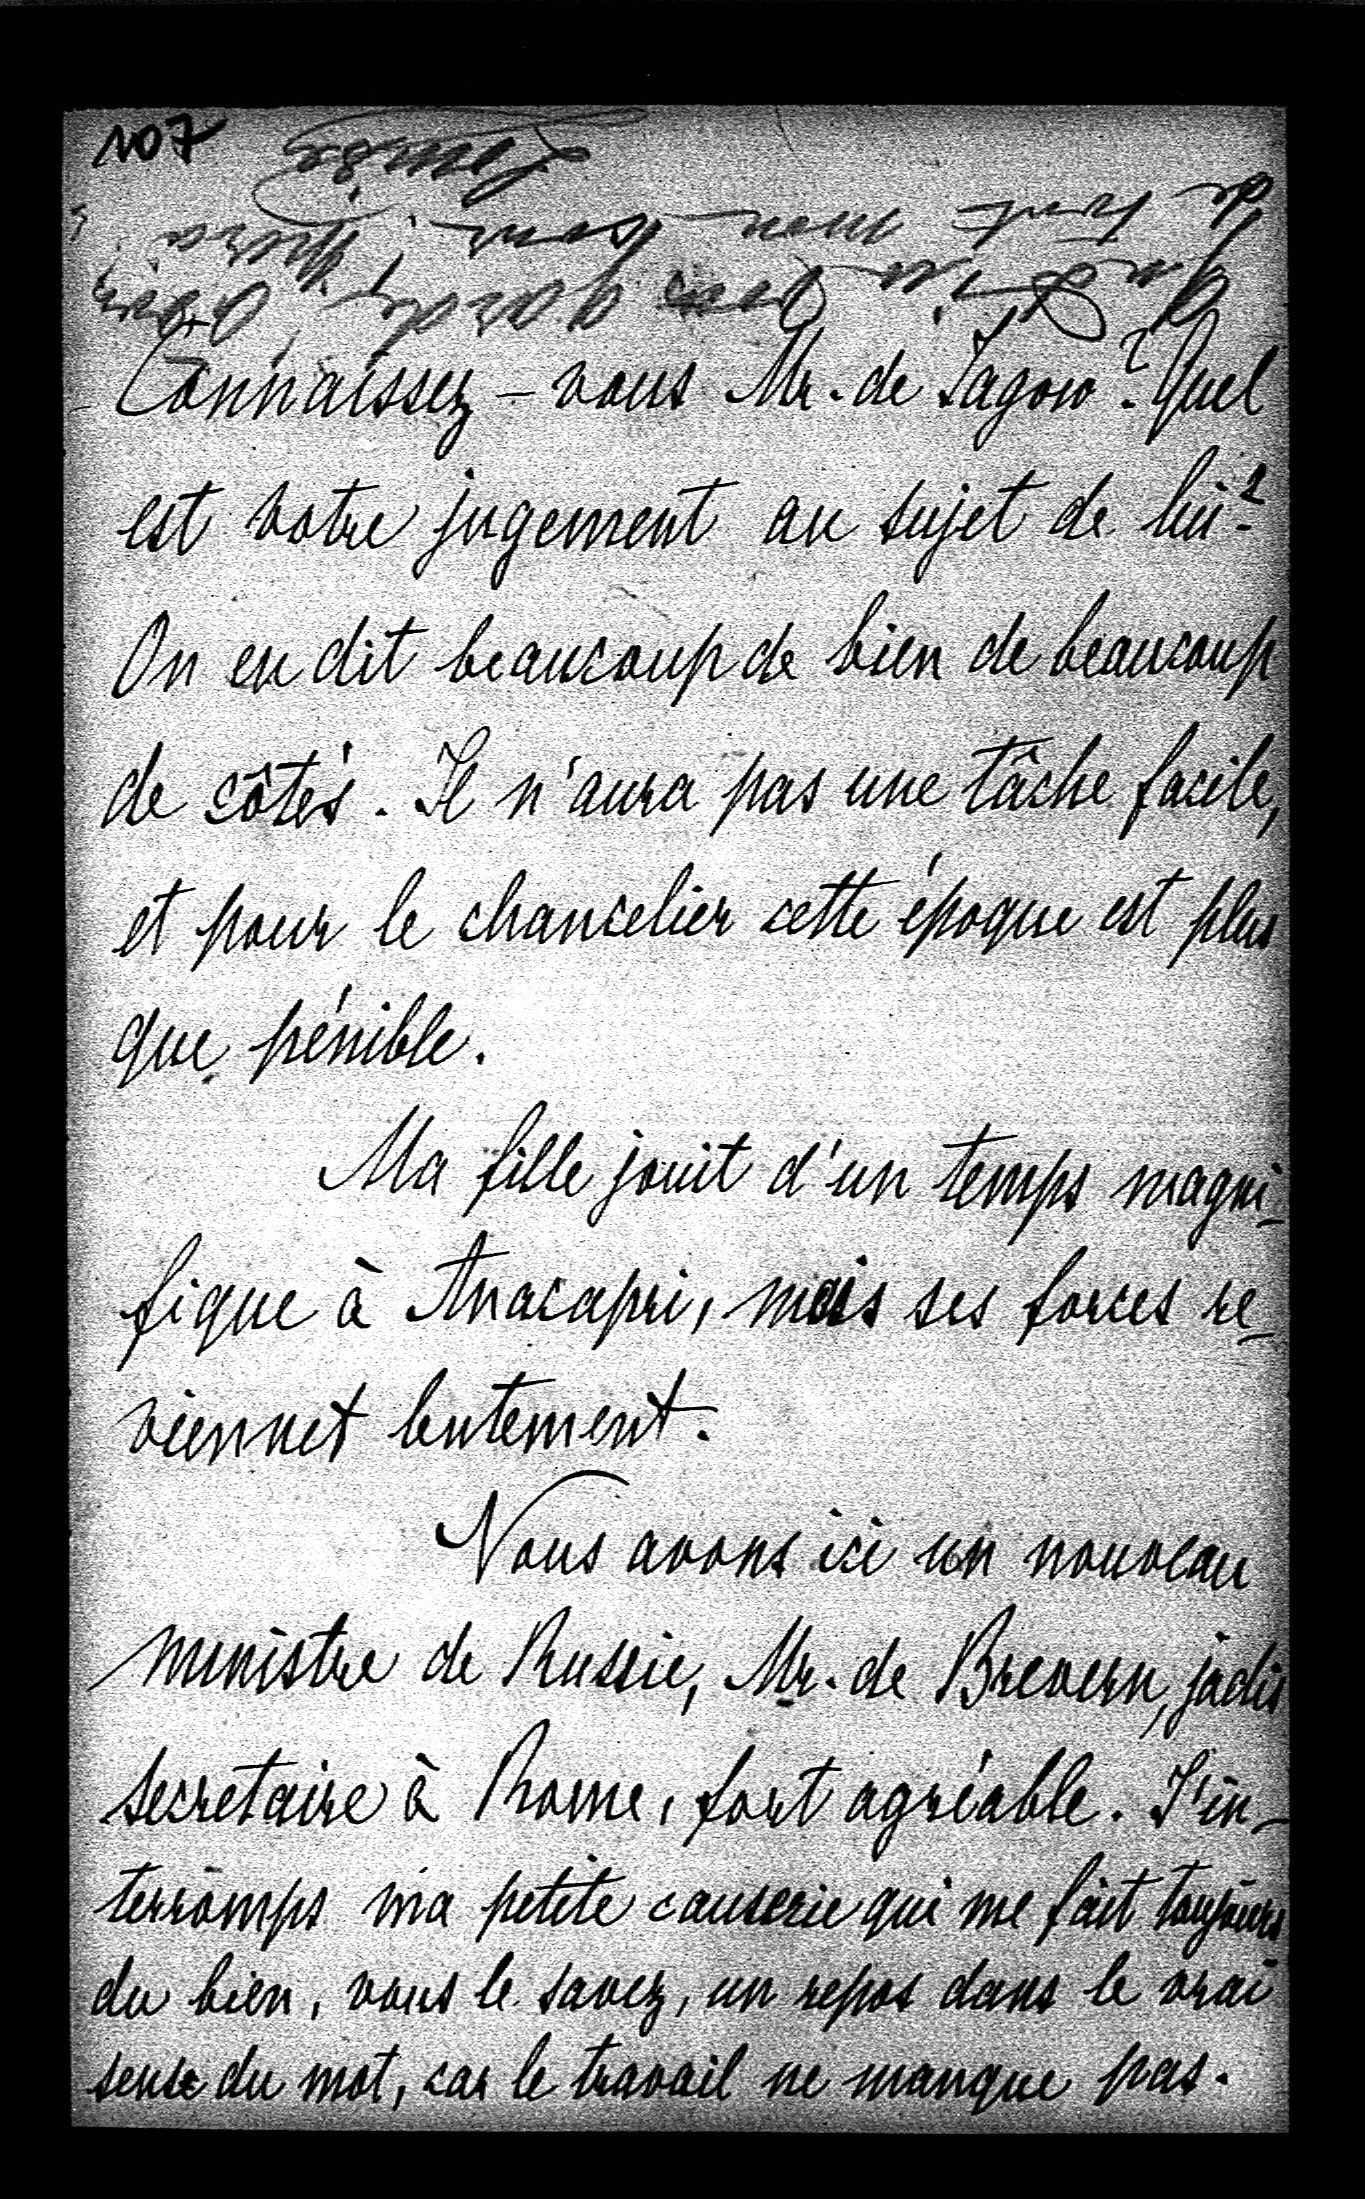 107
Connaissez-vous Mr. de Jagow? Quel
est votre jugement au sujet de lui?
On en dit beaucoup de bien de beaucoup
de côtés. Il n'aura pas une tâche facile,
et pour le chancelier cette époque est plus
que pénible.
Ma fille jouit d'un temps magni-
fique à Anacapri, mais ses forces re-
viennet lentement.
Nous avons ici un nouveau
ministre de Russie, Mr. de Brevern, jadis
secretaire à Rome, fort agréable. J'in-
terromps ma petite causerie qui me fait toujours
du bien, vous le savez, un repos dans le vrai
sense du mot, car le travail ne manque pas.
de tout mon